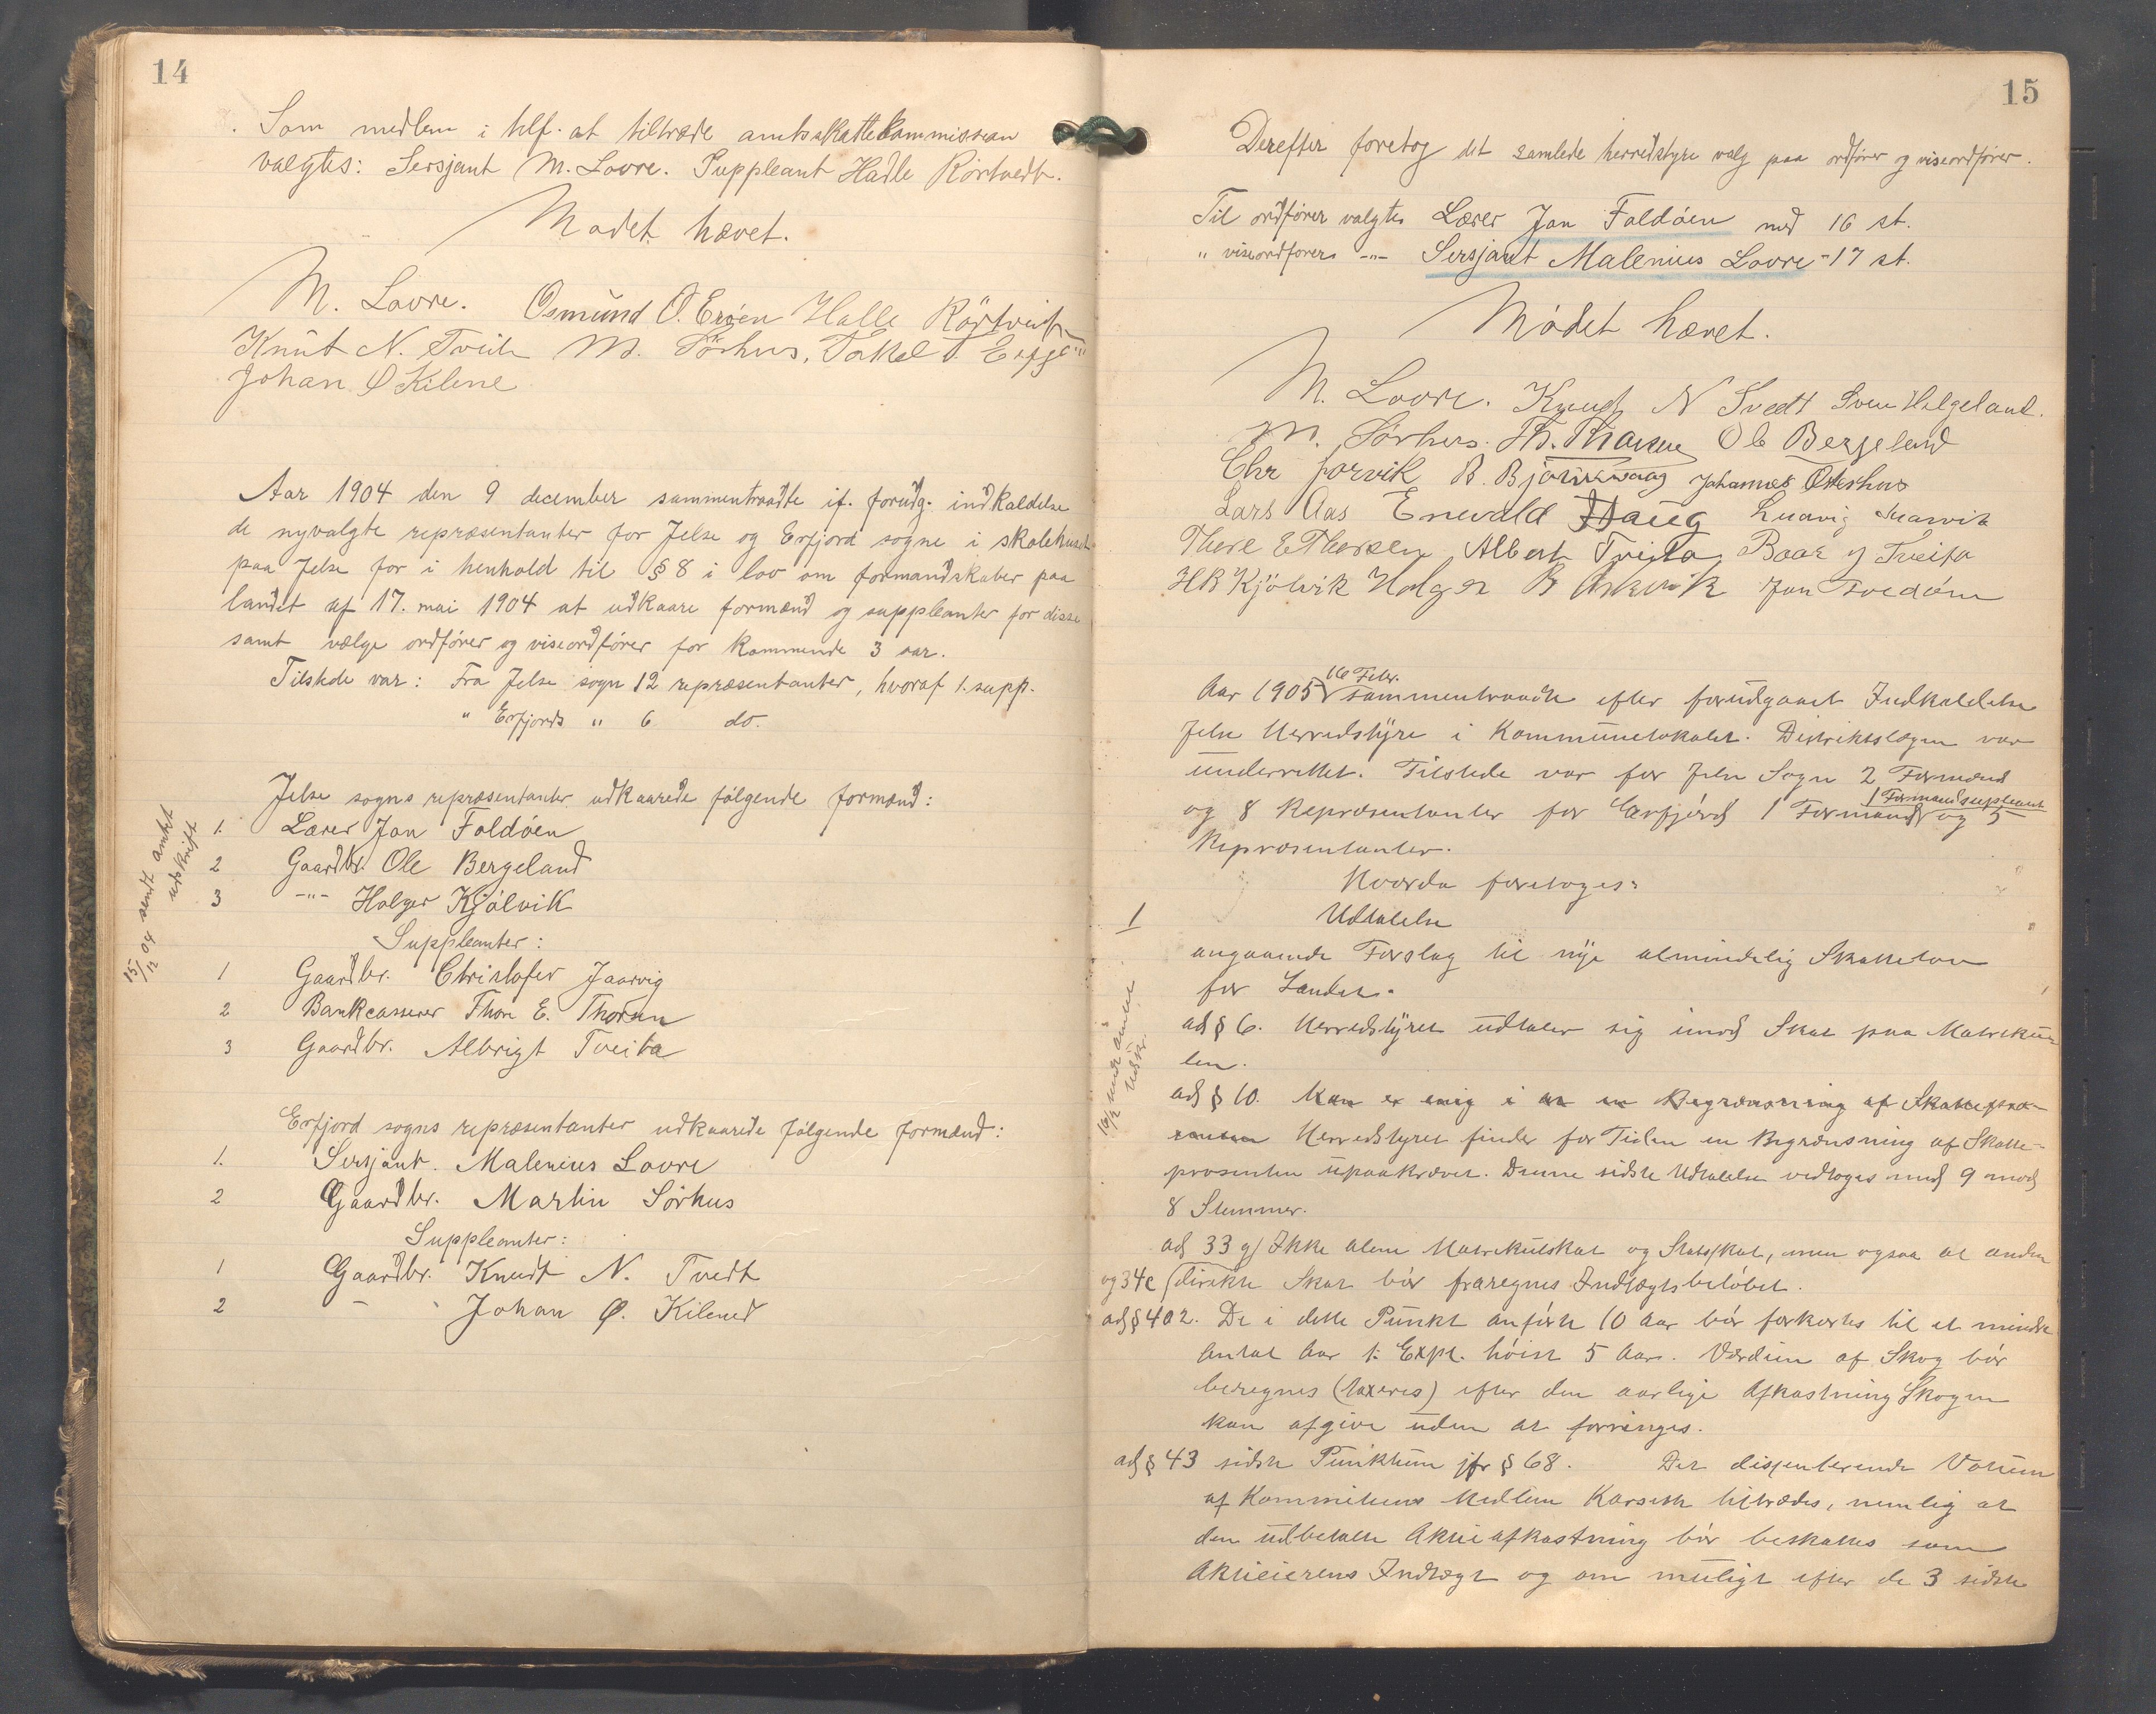 14
Som medlem i tilf. at tiltræde amtsskattekommission
valgtes: Sersjant M. Lovre. Suppleant Hadle Rörtvedt.
Mødet hævet.
M. Lovre. Osmund O. Eröen Halle Rörtveit
Knut N. Tveit M. Sörhus, Takel T.
Johan Ø Kilene
Aar 1904 den 9 december sammentraadte if. forudg. indkaldelse
de nyvalgte repræsentanter for Jelse og Erfjord sogne i skolehuset
paa Jelse for i henhold til § 8 i lov om formandskaber paa
landet af 17. mai 1904 at udkaare formænd og suppleanter for disse
samt vælge ordfører og viseordfører for kommende 3 aar.
Tilstede var: Fra Jelse sogn 12 repræsentanter, hvoraf 1. supp.
" Erfjords " 6 do.
Jelse sogns repræsentanter udkaarede følgende formænd:
15/12 04 sendt amtet
udskrift
1. Lærer Jon Foldøen
2 Gaardbr. Ole Bergeland
3 -"- Holger Kjølvik
Suppleanter:
1 Gaardbr. Christofer Jaarvig
2 Bankcasserer Thore E. Thorsen
3 Gaardbr. Albrigt Tveita
Erfjord sogns repræsentanter udkaarede følgende formænd:
1. Sersjant. Malenius Lovre
2 Gaardbr. Martin Sörhus
Suppleanter:
1 Gaardbr. Knudt N. Tvedt
2 - Johan Ø. Kilened
15
Derefter foretog det samlede herredstyre valg paa ordfører og viseordfører.
Til ordfører valgtes Lærer Jon Foldøen med 16 st.
" viseordfører -"- Sersjant Malenius Lovre - 17 st.
Mødet hævet.
M. Lovre. Knudt N Tvedt Sven Helgeland.
M. Sörhus. Th. Ole Bergeland
Chr Jorvik B. Johannes Österhus
Lars Aas Enevald Haug Ludvig
Thore E Thorsen Albert Tveita Baar Tveita
H B Kjölvik Holger Jon Foldöen
Aar 1905 16 Febr. sammentraadte efter forudgaaet Indkaldelse
Jelse Herredstyre i Kommunelokalet. Distriktslægen var
underrettet. Tilstede var for Jelse Sogn 2 Formænd
og 8 Repræsentanter for Erfjord 1 Formand 1 Formandsupleant og 5
Repræsentanter.
Hvorda foretoges:
1 Udtalelse
angaaende Forslag til nye almindelig Skattelov
for Landet.
16/2 sendt amtet
Udskr.
ad § 6. Herredstyret udtaler sig imod Skat paa Matriku-
len.
ad § 10. Man er enig i at en Begrænsning af Skattepro-
senten Herredstyret finder for Tiden en Begrænsning af Skatte-
prosenten upaakrævet. Denne sidste Udtalelse vedtoges med 9 mod
8 Stemmer.
ad 33 g) Ikke alene Matrikulskat og Statsskat, men ogsaa al anden
og 34c direkte Skat bör fraregnes Indtægtsbelöbet.
ad § 40 2. De i dette Punkt anförte 10 Aar bör forkortes til et mindre
Antal Aar f. Expl. höist 5 Aar. Værdien af Skog bör
beregnes (taxeres) efter den aarlige Afkastning Skogen
kan afgive uden at forringes.
ad § 43 sidste Punktum jfr § 68. Det dissenterende Votum
af Kommiteens Medlem Karsten tiltrædes, nemlig at
den udbetalte Aktieafkastning bör beskattes som
Aktieierens Indtægt og om muligt efter de 3 sidste